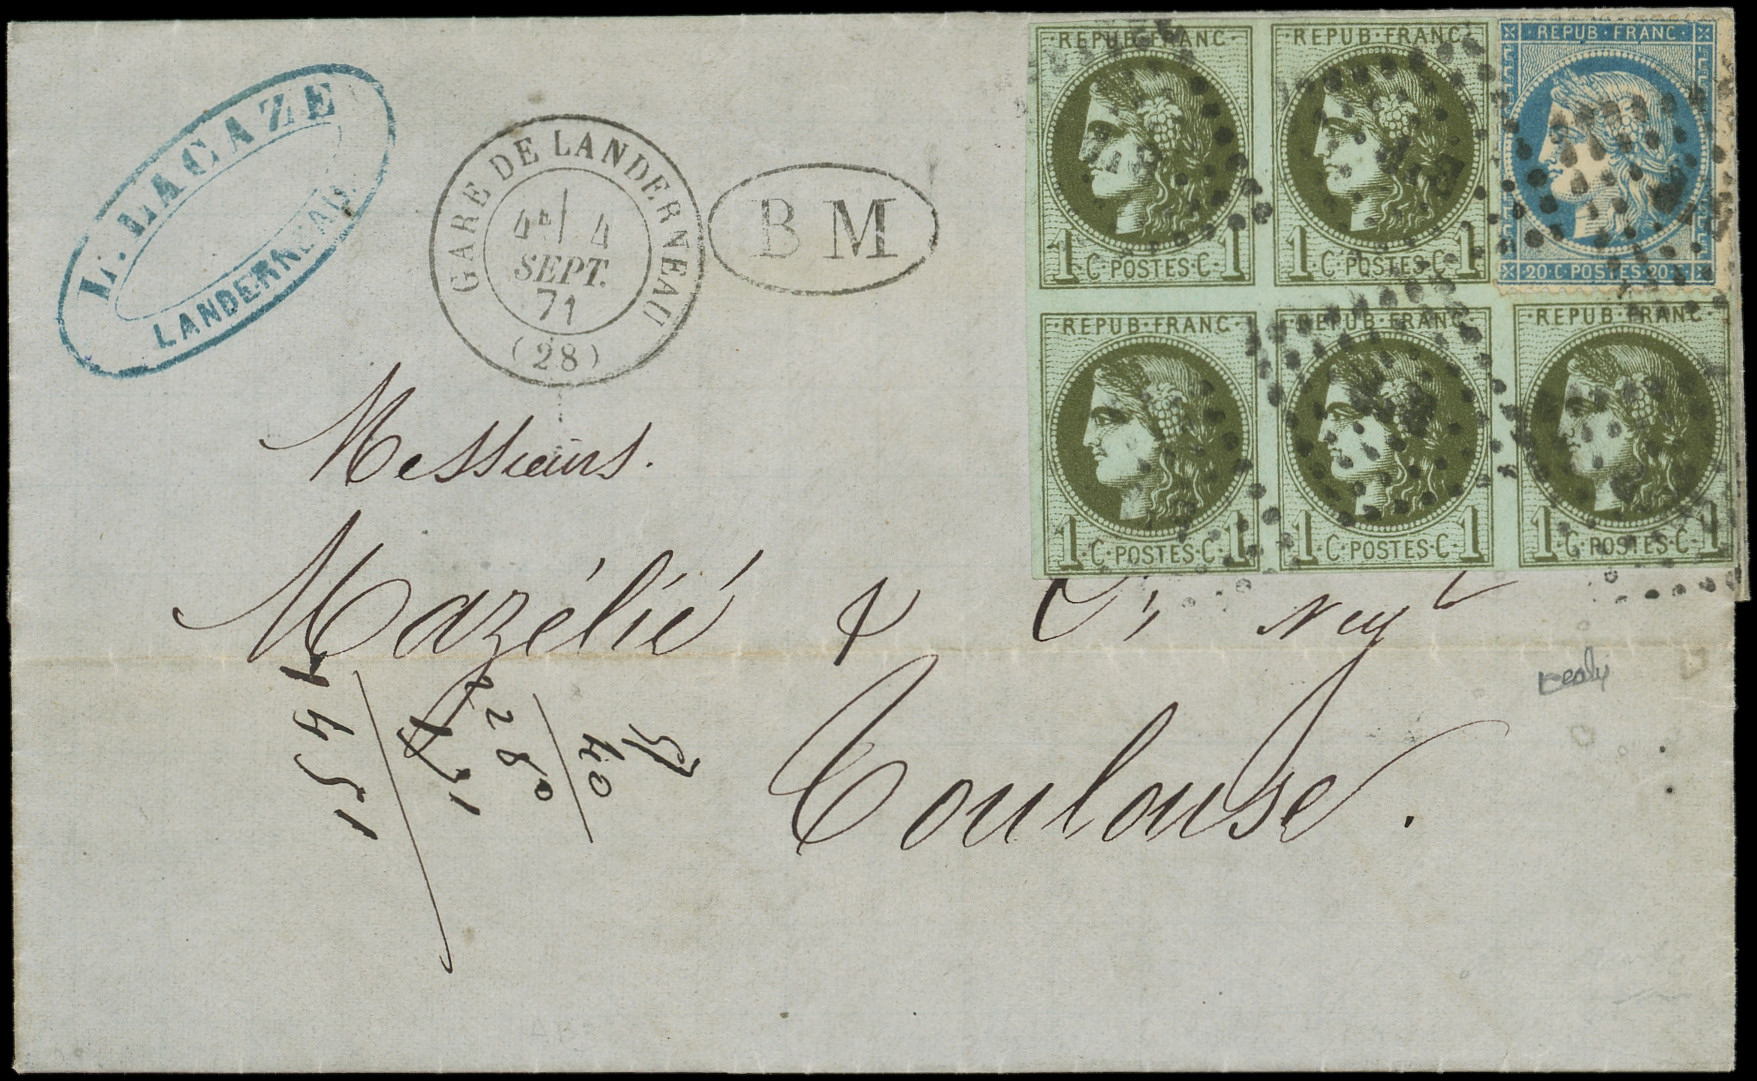 L. LACAZE
LANDERNEAU
GARE DE LANDERNEAU
4E 4
SEPT.
71
(28)
B M
REPUB·FRANC·
·REPUB·FRANC·
·REPUB·FRANC·
1 C·POSTES·C· 1
1 C·POSTES·C· 1
20·C·POSTES·20·C
·REPUB·FRANC·
·REPUB·FRANC·
·REPUB·FRANC·
1 C·POSTES·C· 1
1 C·POSTES·C· 1
1 C·POSTES·C· 1
Messieurs.
Mazélié & Cie Negt
Toulouse.
40
2280